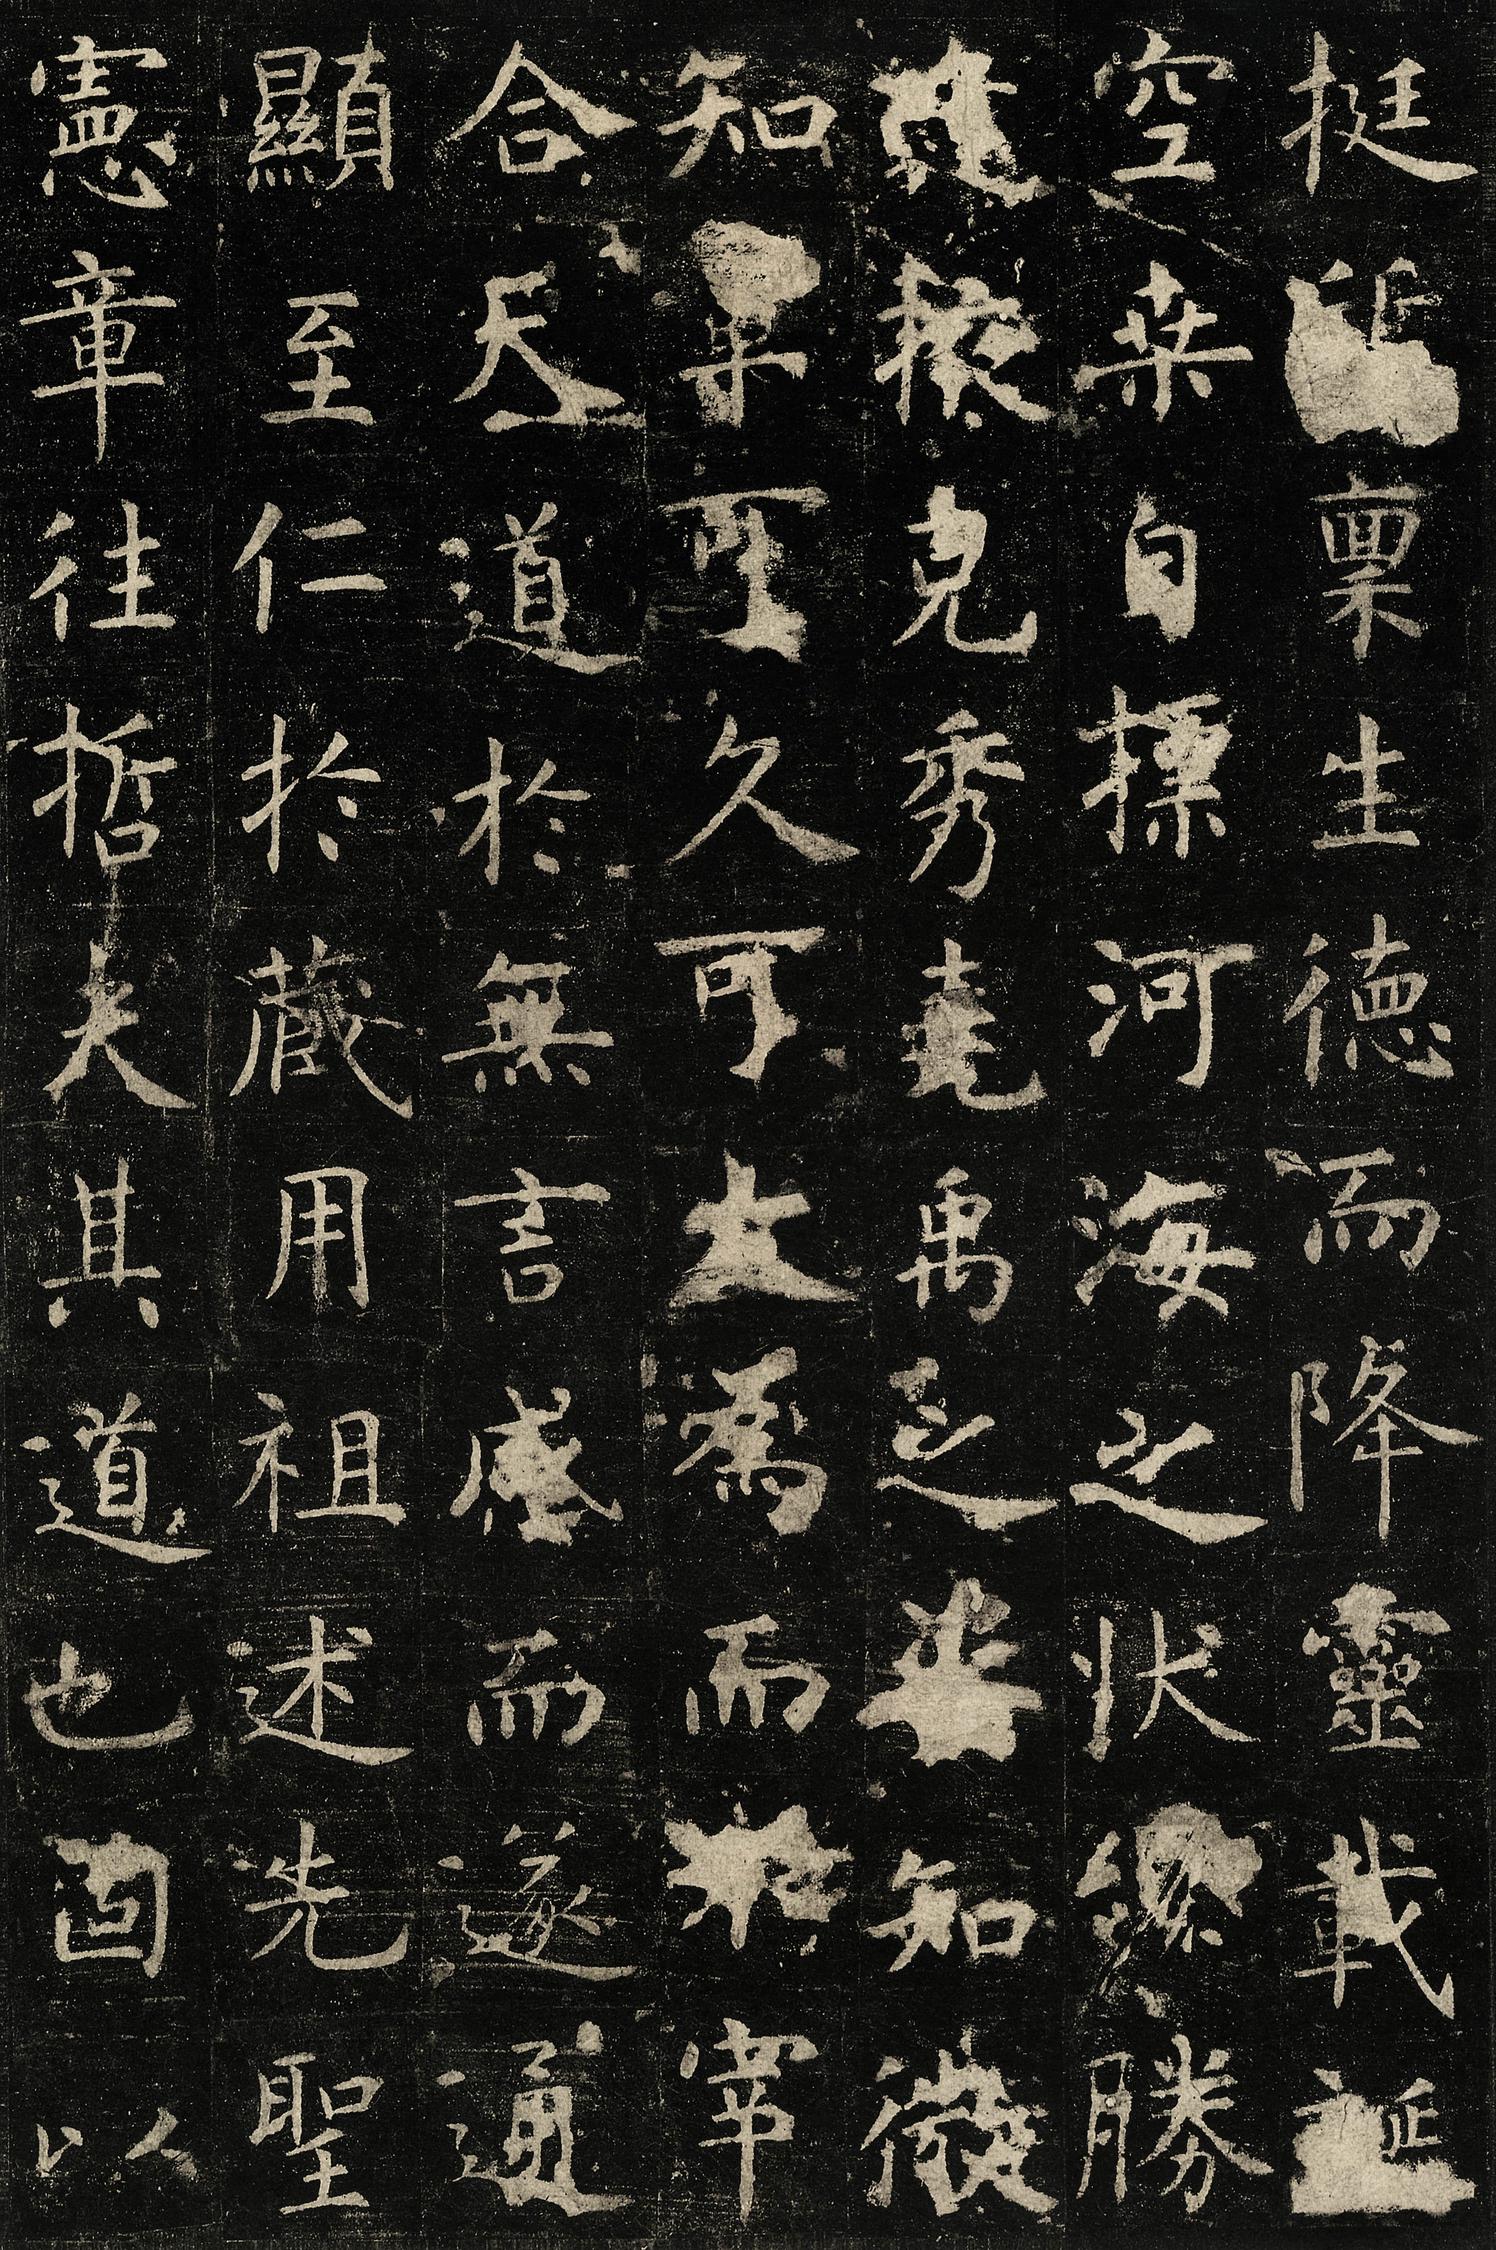 挺稟生德而降靈載誕
空桒自標河海之狀纔勝
逢掖克秀堯禹之姿知微
知章可久可大爲而不宰
合天道於無言感而遂通
顯至仁於藏用祖述先聖
憲章往哲夫其道也固以